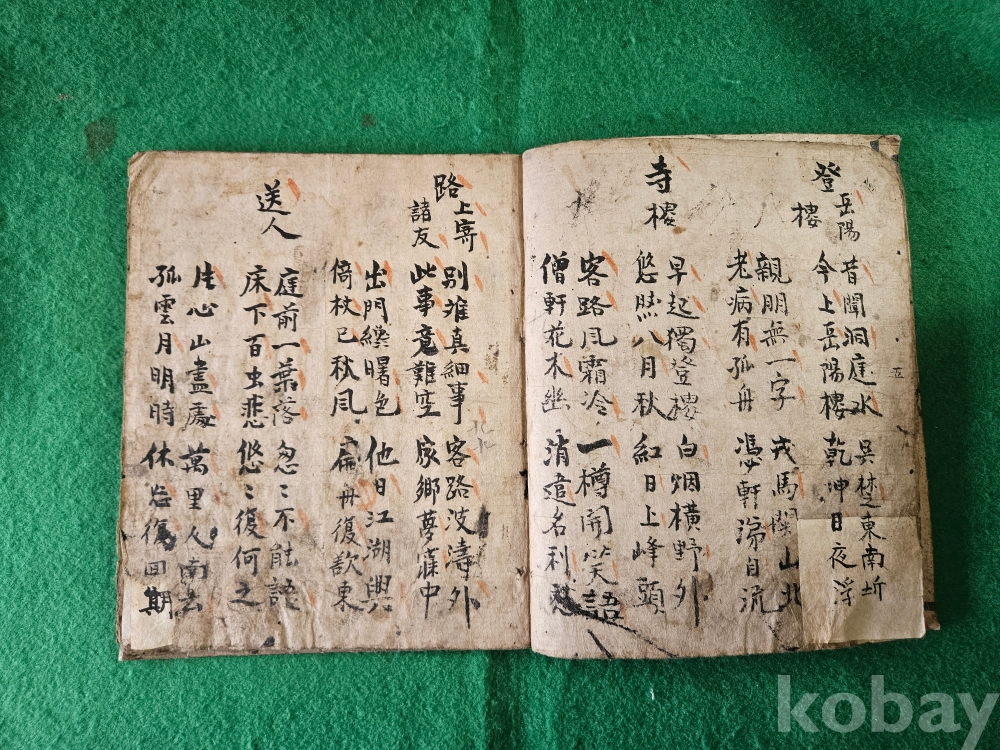 登岳陽樓
昔聞洞庭水 吳楚東南坼
今上岳陽樓 乾坤日夜浮
親朋無一字 戎馬關山北
老病有孤舟 憑軒涕自流
寺樓
早起獨登樓 白烟橫野外
悠然八月秋 紅日上峰頭
客路風霜冷 一樽開笑語
僧軒花木幽 消遣名利愁
五
路上寄諸友
別離真細事 客路波濤外
此事竟難空 家鄉夢寐中
出門纔曙色 他日江湖興
倚杖已秋風 扁舟復欲東
送人
庭前一葉落 忽〻不能語
床下百虫悲 悠〻復何之
片心山盡處 萬里人南去
孤雲月明時 休忘復回期
kobay